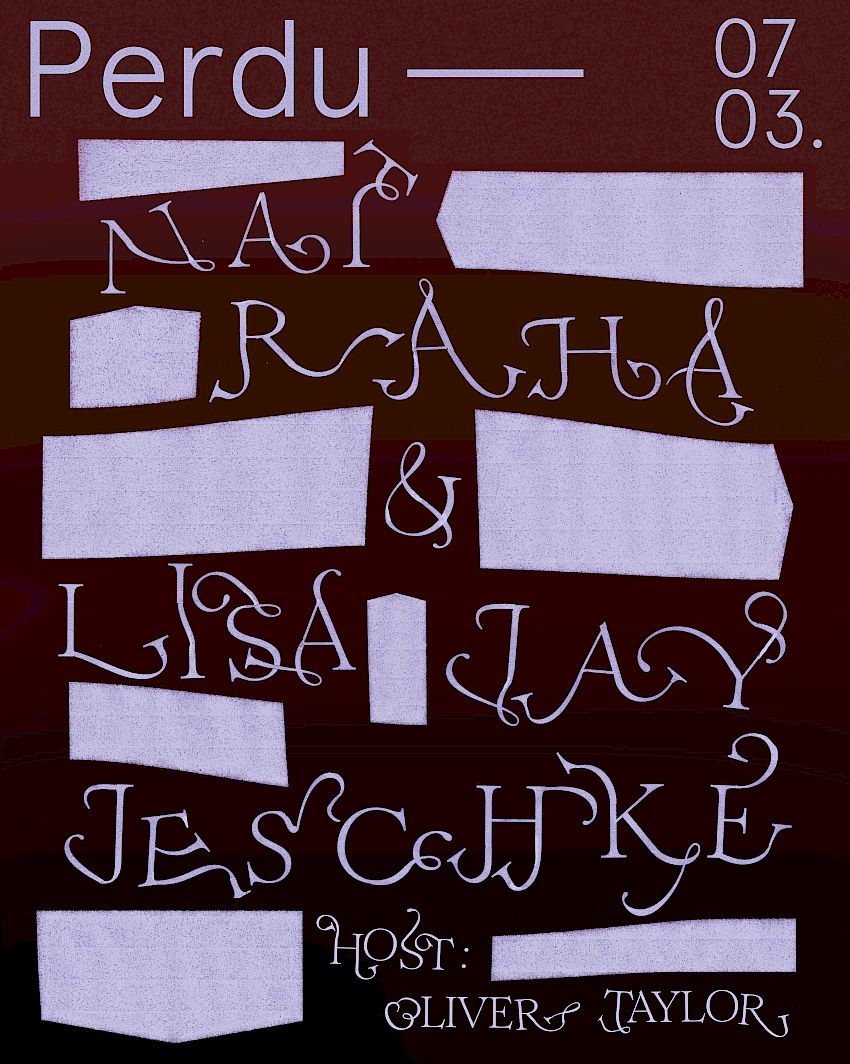 Perdu — 07
03.
NAT
RAHA
&
LISA JAY
JESCHKE
HOST:
OLIVER TAYLOR